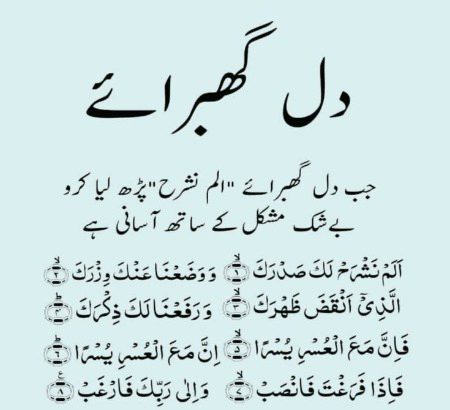 دل گھبرائے
جب دل گھبرائے "الم نشرح" پڑھ لیا کرو
بے شک مشکل کے ساتھ آسانی ہے
اَلَمْ نَشْرَحْ لَكَ صَدْرَكَ ۙ﴿۱﴾ وَوَضَعْنَا عَنْكَ وِزْرَكَ ۙ﴿۲﴾
الَّذِیْۤ اَنْقَضَ ظَهْرَكَ ۙ﴿۳﴾ وَ رَفَعْنَا لَكَ ذِكْرَكَ ؕ﴿۴﴾
فَاِنَّ مَعَ الْعُسْرِ یُسْرًا ۙ﴿۵﴾ اِنَّ مَعَ الْعُسْرِ یُسْرًا ؕ﴿۶﴾
فَاِذَا فَرَغْتَ فَانْصَبْ ۙ﴿۷﴾ وَ اِلٰی رَبِّكَ فَارْغَبْ ۠﴿۸﴾